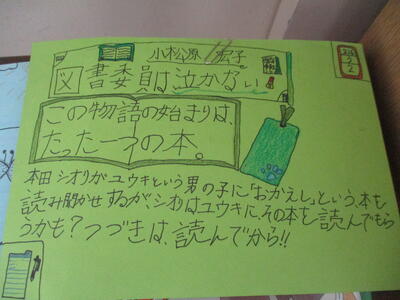 小松原 宏子。
図書委員は泣かない!
この物語の始まりは、
たった一つの本。
本田シオリがユウキという男の子に「おかえし」という本も
読み聞かせするが、シオリはユウキに、その本を読んでもら
うかも?つづきは、読んでから!!